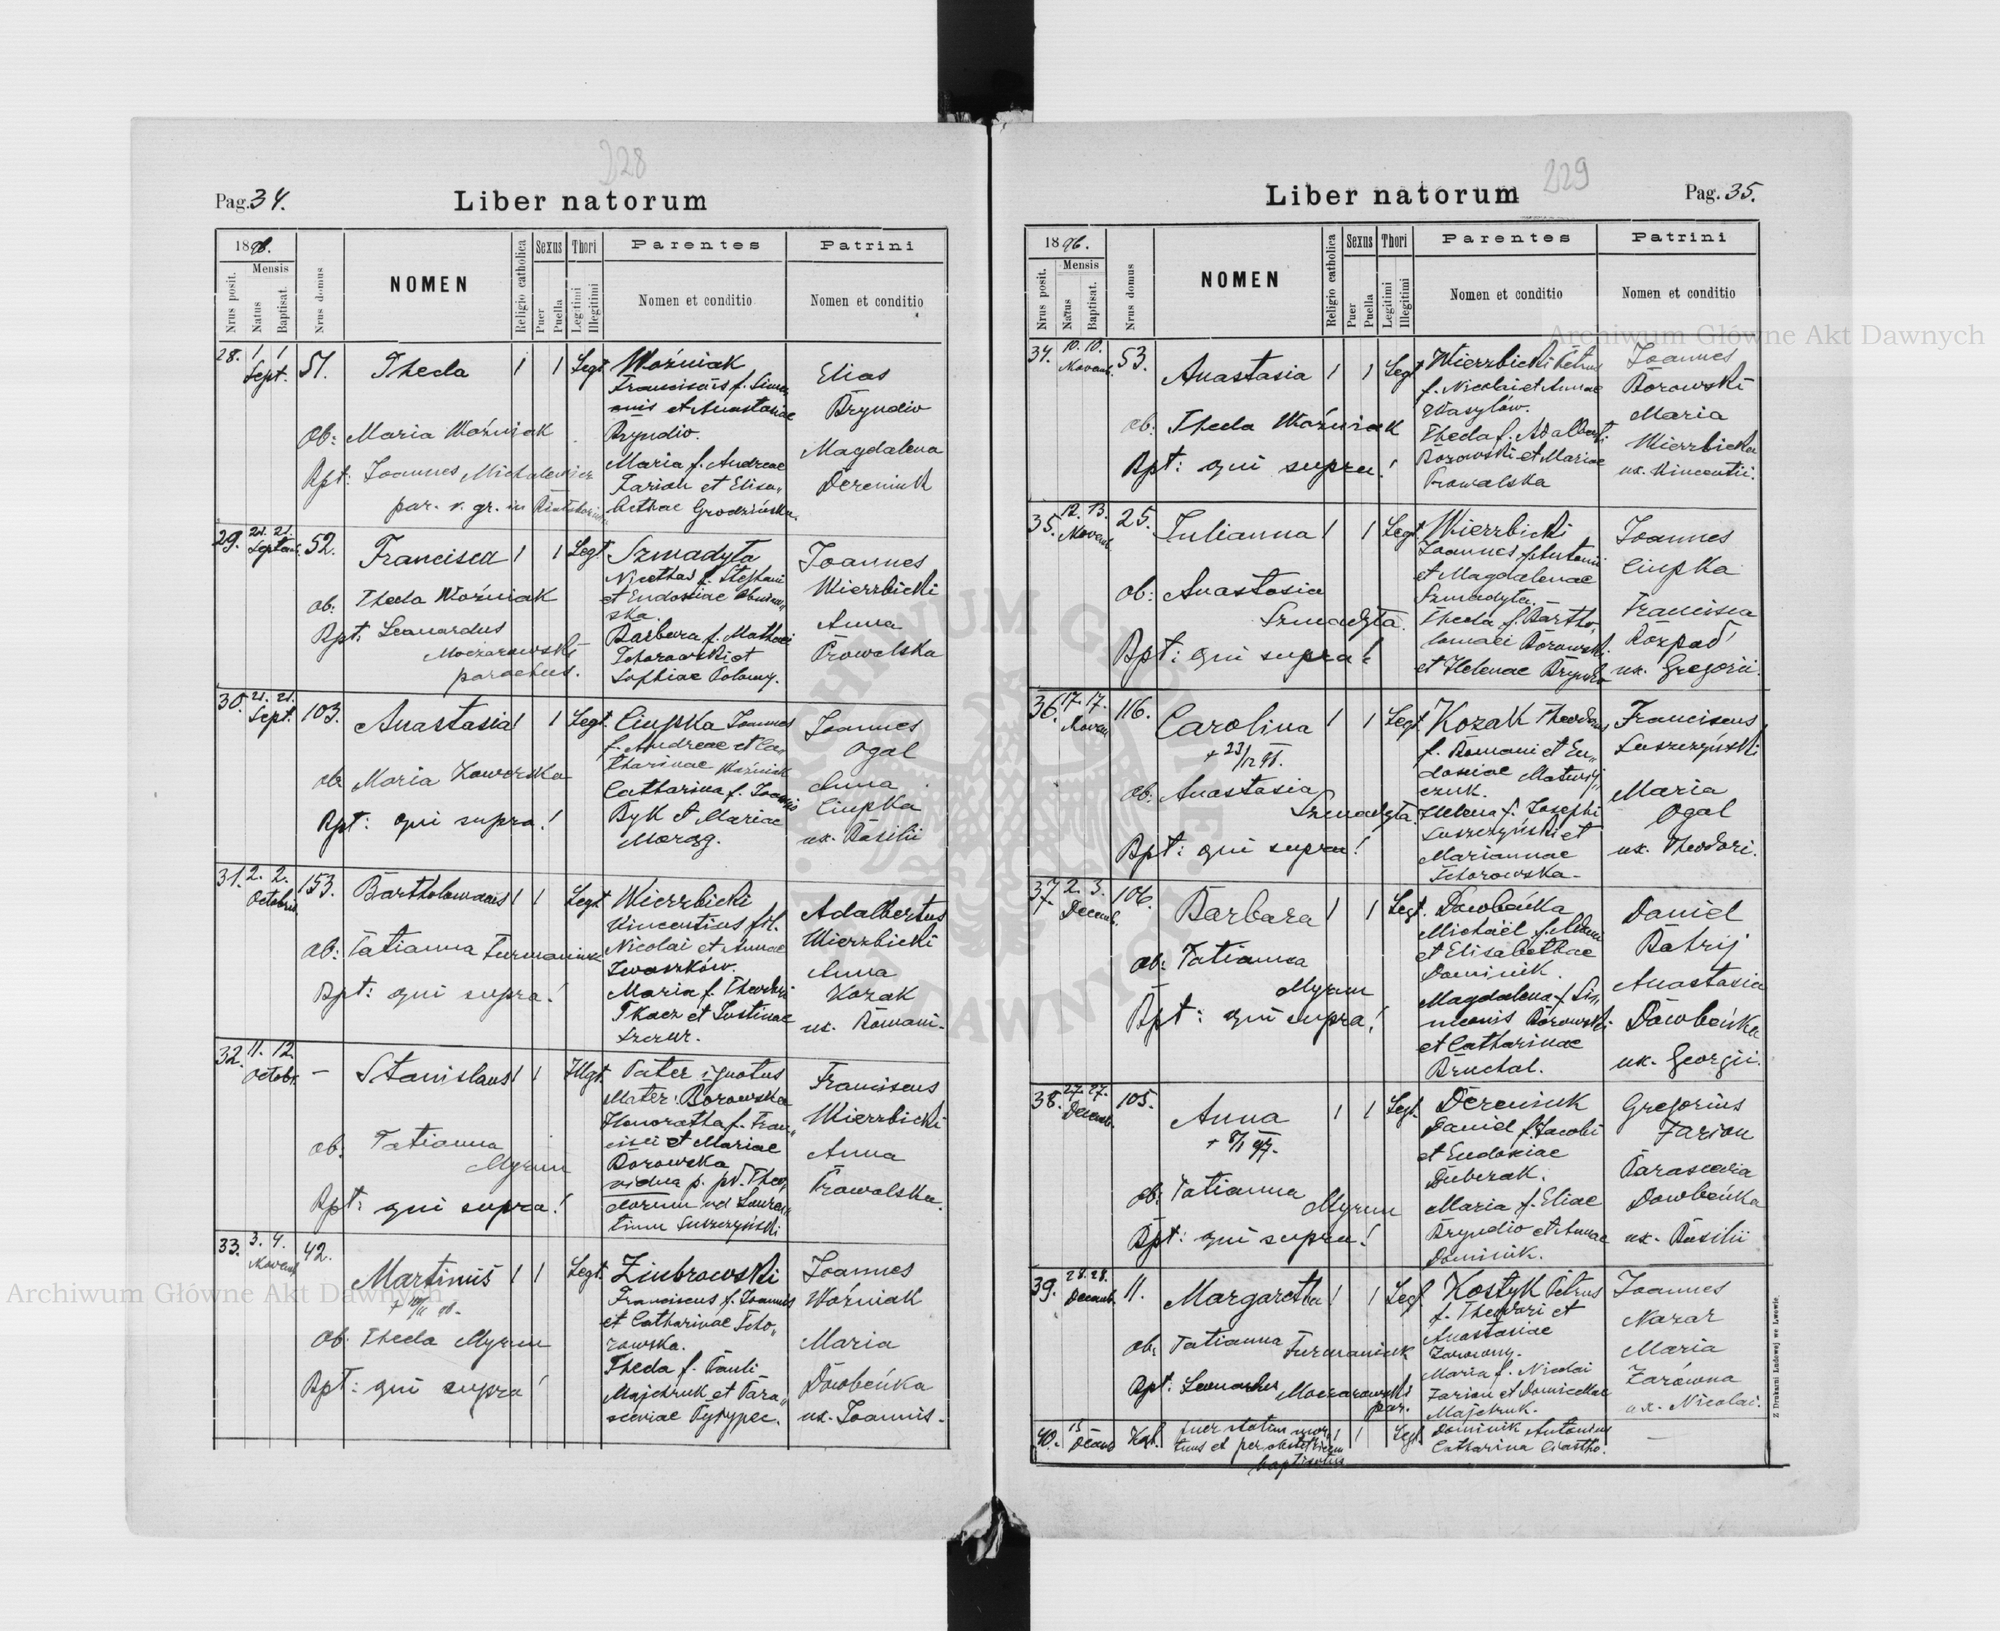 228
Pag. 34.
Liber natorum
1898.
Mensis
Nrus posit.
Natus
Baptisat.
Nrus domus
NOMEN
Religio catholica
Sexus
Puer
Puella
Thori
Legitimi
Illegitimi
Parentes
Nomen et conditio
Patrini
Nomen et conditio
28. 1 1 Sept. 51. Thecla 1 1 Legt.
ob: Maria Woźniak
Bpt: Joannes Michalewicz
par. r. gr. in
Woźniak
Franciscus f. Simeo
nis et Anastasiae
Bryndio.
Maria f. Andreae
Farion et Elisa„
bethae Grodzińska.
Elias
Bryndio
Magdalena
Dereniuk
29. 21. 21. Septemb. 52. Francisca 1 1 Legt.
ob: Thecla Woźniak
Bpt: Leonardus
Moczarowski
parochus.
Szmadyta
Nicethas f. Stephani
et Eudoxiae
ska.
Barbara f. Mathaei
Schorowski et
Sophiae Polowy.
Joannes
Wierzbicki
Anna
Prowalska
30. 21. 21. Sept. 103. Anastasia 1 1 Legt.
ob: Maria Zaworska
Bpt: qui supra!
Ciupka Joannes
f. Andreae et Ca
tharinae Woźniak
Catharina f. Joannis
Byk et Mariae
Morozg.
Joannes
Ogal
Anna
Ciupka
ux. Basilii
31. 2. 2. Octobris 153. Bartholomaeus 1 1 Legt.
ob: Tatianna Furmaniuk
Bpt: qui supra!
Wierzbicki
Vincentius fil.
Nicolai et Annae
Iwaszków.
Maria f. Theodori
Tkacz et Justinae
Szczur.
Adalbertus
Wierzbicki
Anna
Kozak
ux. Romani.
32. 11. 12. Octobr. — Stanislaus 1 1 Illegt.
ob: Tatianna
Myrun
Bpt: qui supra!
Pater ignotus
Mater: Borowska
Honoratha f. Fran„
cisci et Mariae
Borowska
vidua p. pd. Theo„
dorum vel Lauren„
tium Luszczyński
Franciscus
Wierzbicki
Anna
Prowalska.
33. 3. 4. Novemb. 42. Martinus 1 1 Legt.
ob: Thecla Myrun
Bpt: qui supra!
Ziubrowski
Franciscus f. Joannis
et Catharinae Scho„
rowska.
Thecla f. Pauli
Majchruk et Para„
sceviae Pyrypec.
Joannes
Woźniak
Maria
Dowbeńka
ux. Joannis.
229
Liber natorum
Pag. 35.
1896.
Mensis
Nrus posit.
Natus
Baptisat.
Nrus domus
NOMEN
Religio catholica
Sexus
Puer
Puella
Thori
Legitimi
Illegitimi
Parentes
Nomen et conditio
Patrini
Nomen et conditio
34. 10. 10. Novemb. 53. Anastasia 1 1 Legt.
ob: Thecla Woźniak
Bpt: qui supra!
Wierzbicki Petrus
f. Nicolai et Annae
Wasylów.
Thecla f. Adalberti
Borowski et Mariae
Prowalska
Joannes
Borowski
Maria
Wierzbicka
ux. Vincentii.
35. 12. 13. Novemb. 25. Julianna 1 1 Legt.
ob: Anastasia
Szmadyta.
Bpt: qui supra!
Wierzbicki
Joannes f. Antonii
et Magdalenae
Szmadyta.
Thecla f. Bartho„
lomaei Borowski
et Helenae Bryndio
Joannes
Ciupka
Francisca
Rozpad
ux. Gregorii.
36. 17. 17. Novem 116. Carolina 1 1 Legt.
+ 23/12 98.
ob: Anastasia
Szmadyta.
Bpt: qui supra!
Kozak Theodorus
f. Romani et Eu„
doxiae Matwij
czuk.
Helena f. Josephi
Luszczyński et
Mariannae
Schorowska.
Franciscus
Luszczyński
Maria
Ogal
ux. Theodori.
37. 2. 3. Decemb. 106. Barbara 1 1 Legt.
ob: Tatianna
Myrun
Bpt: qui supra!
Dowbeńka
Michaël f. Adami
et Elisabethae
Dominik.
Magdalena f. Si„
meonis Borowski
et Catharinae
Bruchal.
Daniel
Batrij
Anastasia
Dowbeńka
ux. Georgii.
38. 27. 27. Decemb. 105. Anna 1 1 Legt.
ob: Tatianna
Myrun
Bpt: qui supra!
Dereniuk
Daniel f. Jacobi
et Eudoxiae
Duberak.
Maria f. Eliae
Bryndio et Annae
Dominik.
Gregorius
Farion
Parascevia
Dowbeńka
ux. Basilii
39. 28. 28. Decemb. 11. Margaretha 1 1 Legt.
ob: Tatianna Furmaniuk
Bpt: Leonardus Moczarowski
par.
Kostyk Petrus
f. Theodori et
Anastasiae
Zarowny.
Maria f. Nicolai
Farion et Domicellae
Majchruk.
Joannes
Nazar
Maria
Zarówna
ux. Nicolai.
40. 15 Decemb puer statim mor„ 1 1 Legt.
tuus et per obstetricem
baptisatus
Dominik Antonius
Catharina
—
Z Drukarni Ludowej we Lwowie.
Archiwum Główne Akt Dawnych
Archiwum Główne Akt Dawnych
ARCHIWUM GŁÓWNE AKT DAWNYCH